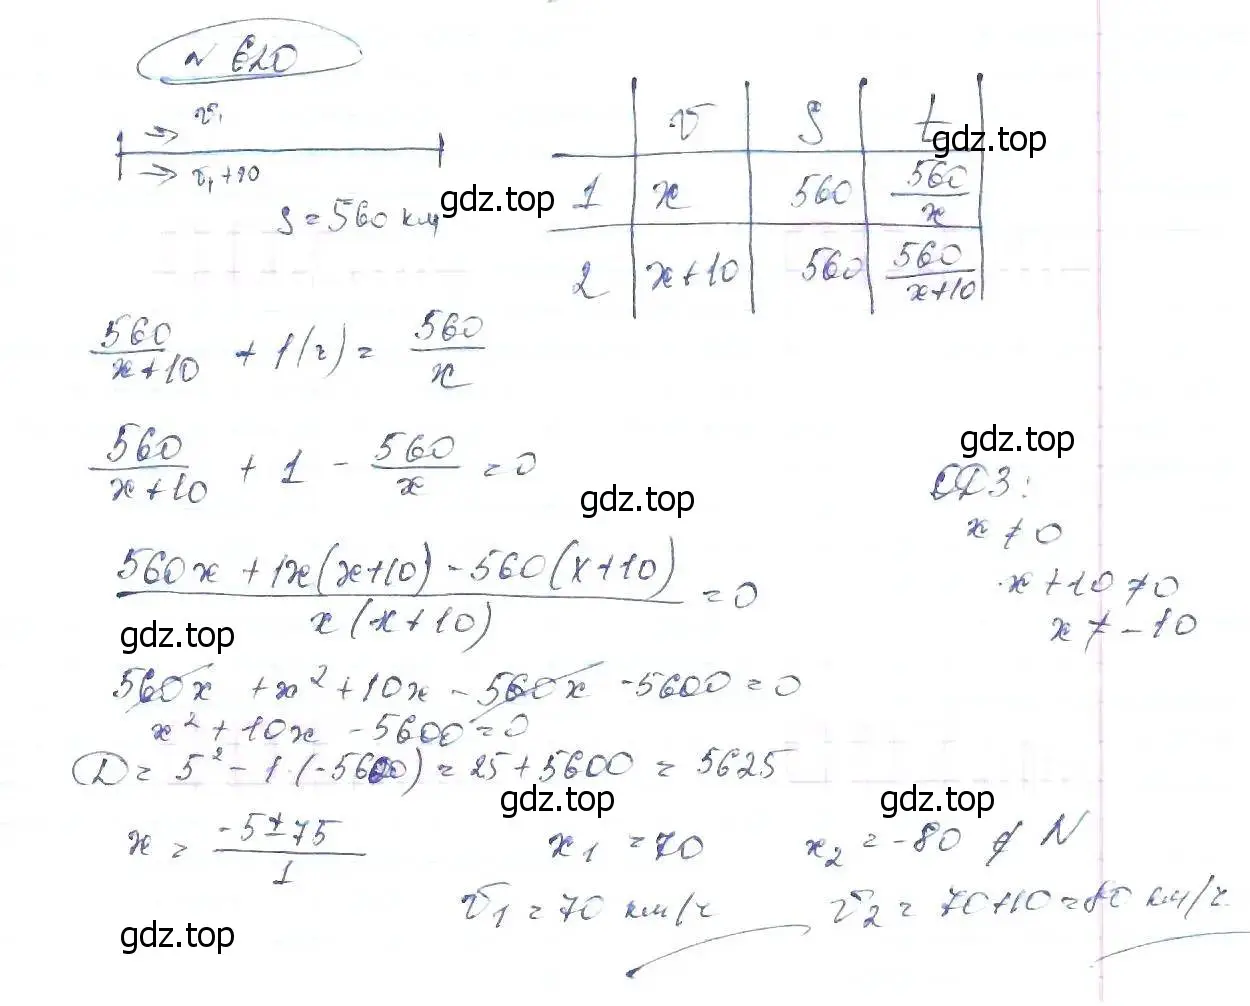 № 620
v₁
v₁+10
S = 560 км
gdz.top
v S t
gdz.top
1 x 560 560/x
2 x+10 560 560/(x+10)
560/(x+10) + 1(ч) = 560/x
560/(x+10) + 1 - 560/x = 0
gdz.top
gdz.top
ОДЗ:
x ≠ 0
x+10 ≠ 0
x ≠ -10
(560x + 1x(x+10) - 560(x+10))/(x(x+10)) = 0
gdz.top
560x + x² + 10x - 560x - 5600 = 0
x² + 10x - 5600 = 0
D = 5² - 1·(-5600) = 25 + 5600 = 5625
gdz.top gdz.top
x = (-5±75)/1 x₁ = 70 x₂ = -80 ∉ N
v₁ = 70 км/ч v₂ = 70+10 = 80 км/ч
gdz.top